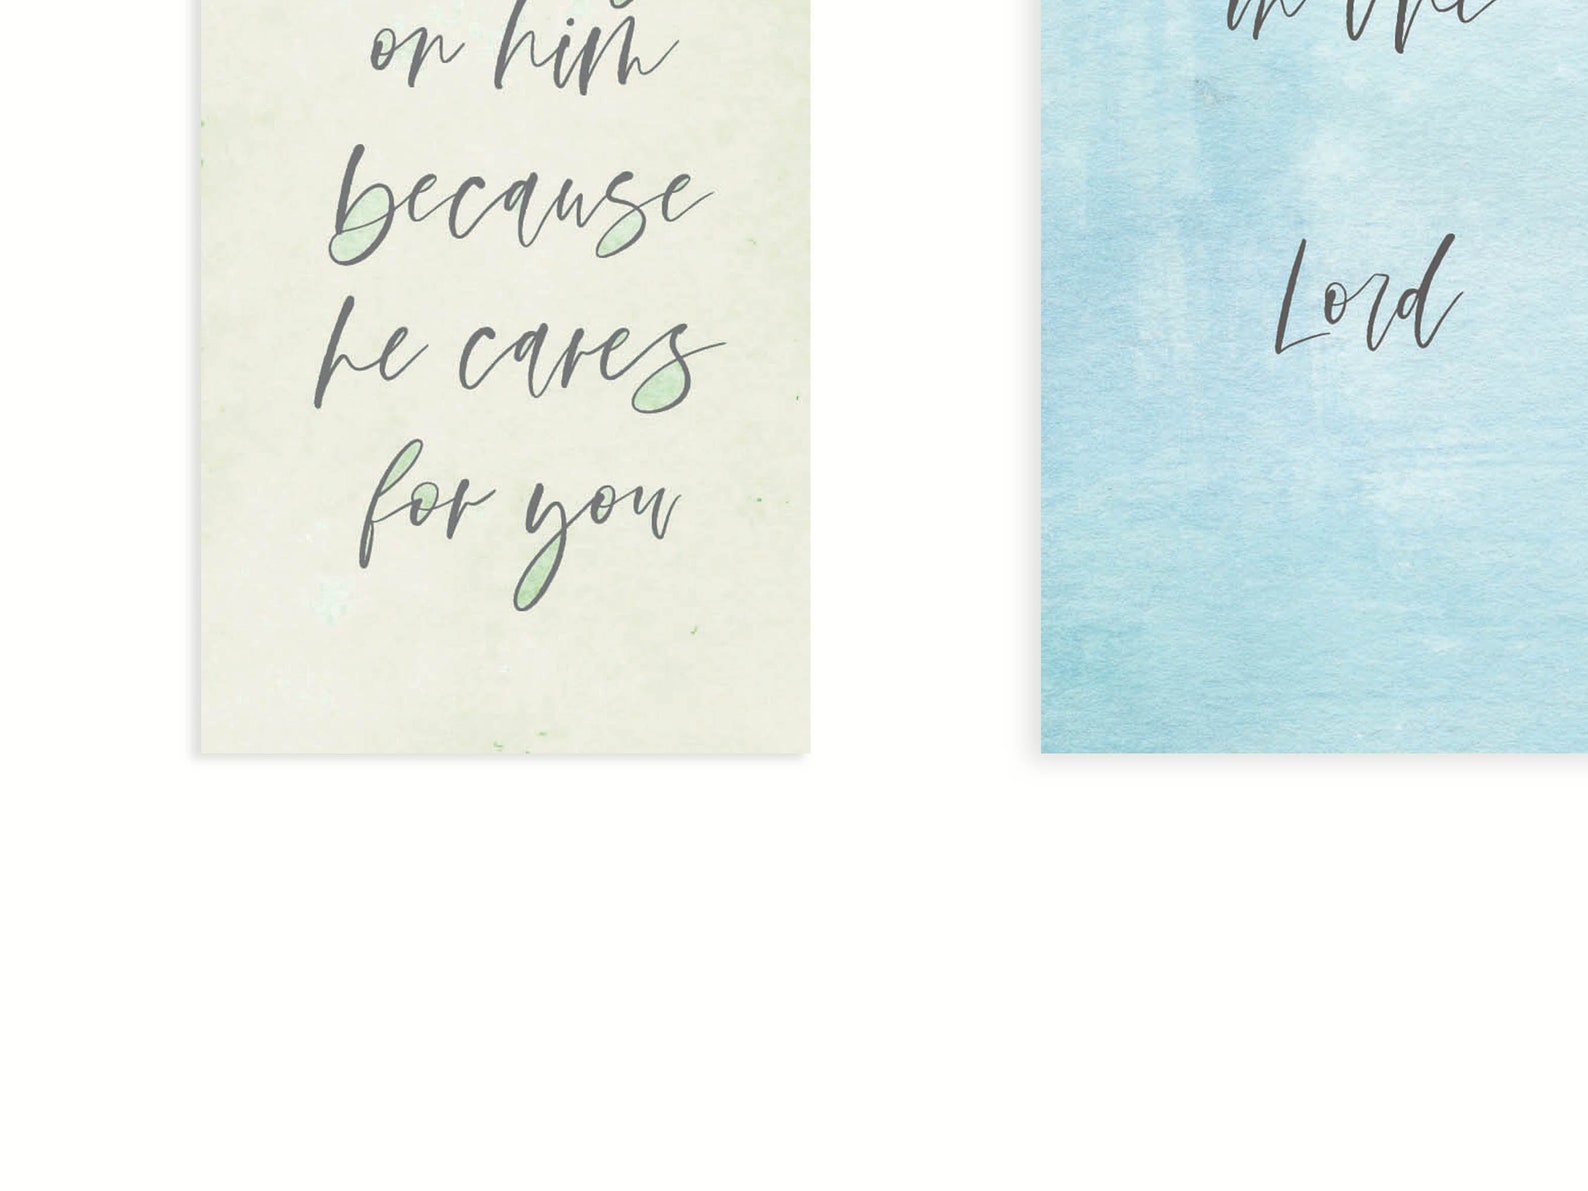 on him
because
he cares
for you
in the
Lord